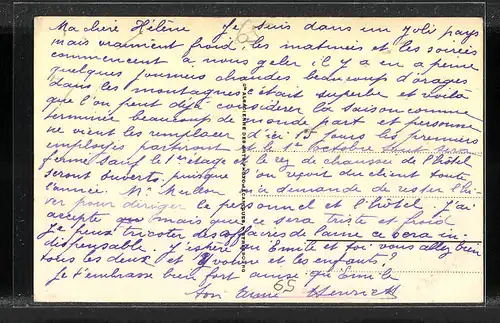 Ma chère Hélène Je suis dans un joli pays
mais vraiment froid, les matinées et les soirées
commencent à nous geler il y a eu à peine
quelques journées chaudes beaucoup d'orages
dans les montagnes c'était superbe et voilà
que l'on peut déjà considérer la saison comme
terminée beaucoup de monde part et personne
ne vient les remplacer d'ici 15 jours les premiers
employés partiront et le 1er octobre tout sera
fermé sauf le 1er étage et le rez de chaussée de l'hôtel
seront ouverts, puisque l'on reçoit du client toute
l'année. Mr a demandé de rester l'hi-
ver pour diriger le personnel et l'hôtel j'ai
accepté mais que ce sera triste et froid
Je peux tricoter des affaires de laine ce sera in-
dispensable. J'espère qu'Emile et toi vous allez bien
tous les deux et Yvonne et les enfants?
Je t'embrasse bien fort ainsi qu'Emile
ton
65
59